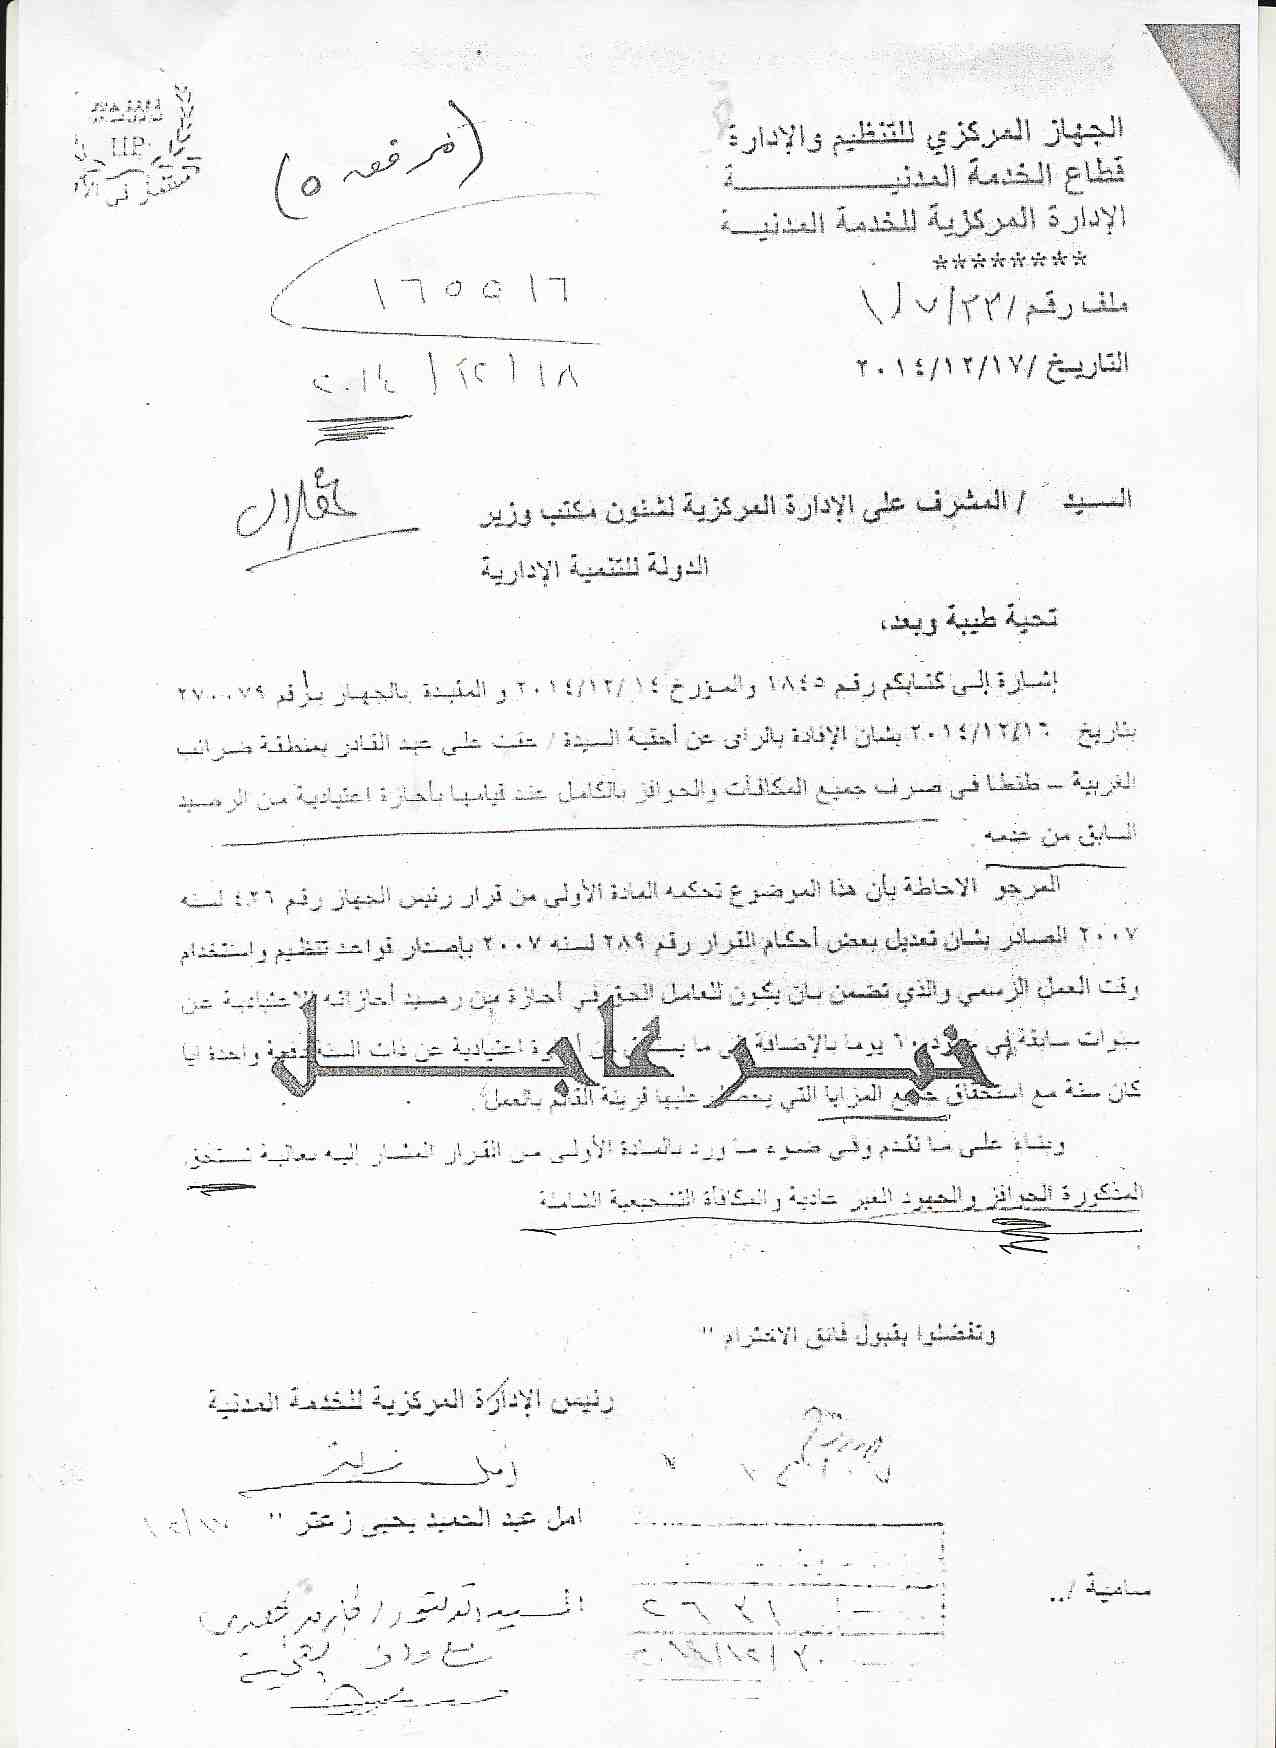 الجهاز المركزي للتنظيم والإدارة
قطاع الخدمة المدنيـــــــــــة
الإدارة المركزية للخدمة المدنيـــة
********
ملف رقم /٢٣/ ٧ / ١
التاريخ /٢٠١٤/١٢/١٧
(مرفقه ٥)
١٦٥٥١٦
٢٠١٤/١٢/١٨
السيد / المشرف على الإدارة المركزية لشئون مكتب وزير
الدولة للتنمية الإدارية
تحية طيبة وبعد،
إشارة إلى كتابكم رقم ١٨٤٥ والمؤرخ ٢٠١٤/١٢/١٤ والمقيدة بالجهاز برقم ٢٧٠٠٧٩
بتاريخ ٢٠١٤/١٢/١٦ بشان الإفادة بالراى عن أحقية السيدة / عفت على عبد القادر بمنطقة ضرائب
الغربية – طنطا في صرف جميع المكافأت والحوافز بالكامل عند قيامها بأجازة اعتيادية من الرصيد
السابق من عدمه .
المرجو الاحاطة بأن هذا الموضوع تحكمه المادة الأولى من قرار رئيس الجهاز رقم ٤٢٦ لسنه
٢٠٠٧ الصادر بشان تعديل بعض أحكام القرار رقم ٢٨٩ لسنه ٢٠٠٧ بإصدار قواعد تنظيم واستخدام
وقت العمل الرسمي والذي تضمن بان يكون للعامل الحق في أجازة من رصيد أجازاته الاعتيادية عن
سنوات سابقة في حدود ٦٠ يوما بالإضافة إلى ما يستحق من أجازة اعتيادية عن ذات السنة دفعة واحدة ايا
كان سنة مع استحقاق جميع المزايا التي يحصل عليها قرينة القائم بالعمل.
خبر عاجل
وبناء على ما تقدم وفي ضوء ما ورد بالمادة الأولى من القرار المشار إليه بعالية تستحق
المذكورة الحوافز والجهود الغير عادية والمكافأة التشجيعية الشاملة
وتفضلوا بقبول فائق الاحترام "
رئيس الإدارة المركزية للخدمة المدنية
امل عبد الحميد يحيى زعتر "
سامية /..